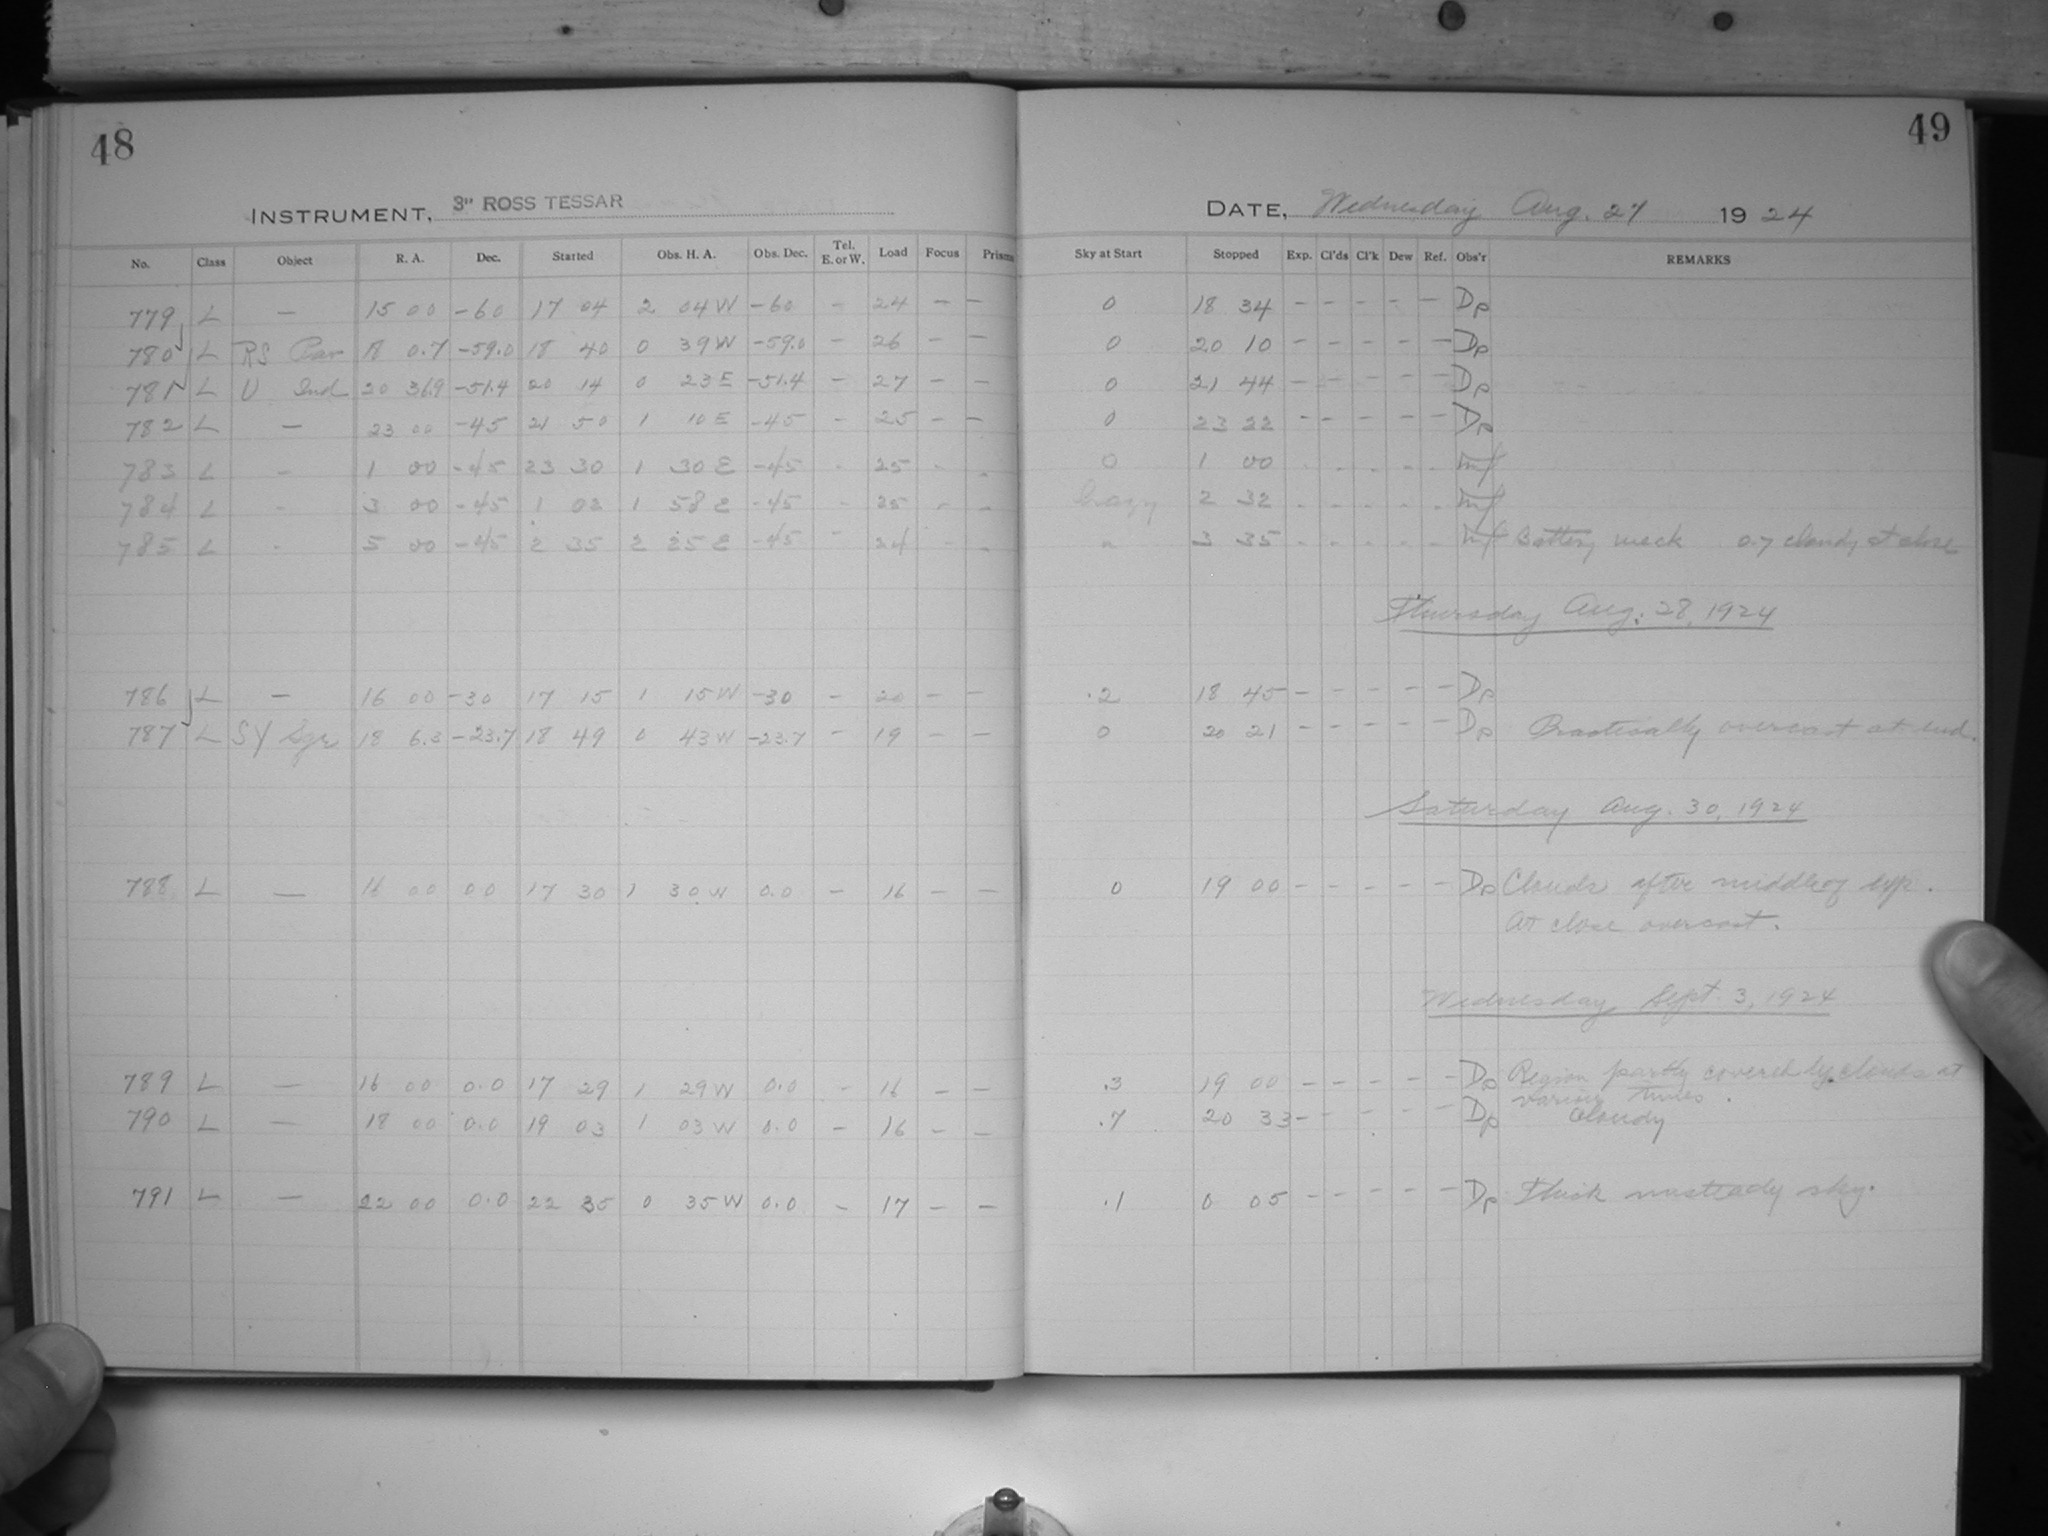 48
49
INSTRUMENT, 3" ROSS TESSAR
DATE, Wednesday Aug. 27 1924
No. Class Object R. A. Dec. Started Obs. H. A. Obs. Dec. Tel. E. or W. Load Focus Prisms Sky at Start Stopped Exp. Cl'ds Cl'k Dew Ref. Obs'r REMARKS
779 L — 15 00 -60 17 04 2 04 W -60 - 24 - - 0 18 34 - - - - - Dp
780 L RS Pav 18 0.7 -59.0 18 40 0 39 W -59.0 - 26 - - 0 20 10 - - - - - Dp
781 L U Ind 20 36.9 -51.4 20 14 0 23 E -51.4 - 27 - - 0 21 44 - - - - - Dp
782 L — 23 00 -45 21 50 1 10 E -45 - 25 - - 0 23 22 - - - - - Dp
783 L - 1 00 -45 23 30 1 30 E -45 - 25 - - 0 1 00 - - - - -
784 L - 3 00 -45 1 02 1 58 E -45 - 25 - - hazy 2 32 - - - - -
785 L - 5 00 -45 2 35 2 25 E -45 - 24 - - " 3 35 - - - - - Battery weak 0.7 cloudy at close
Thursday Aug. 28, 1924
786 L — 16 00 -30 17 15 1 15 W -30 - 20 - - .2 18 45 - - - - - Dp
787 L SY Sgr 18 6.3 -23.7 18 49 0 43 W -23.7 - 19 - - 0 20 21 - - - - - Dp Practically overcast at end.
Saturday Aug. 30, 1924
788 L — 16 00 0 0 17 30 1 30 W 0.0 - 16 - - 0 19 00 - - - - - Dp Clouds after middle of exp.
At close overcast.
Wednesday Sept. 3, 1924
789 L — 16 00 0.0 17 29 1 29 W 0.0 - 16 - - .3 19 00 - - - - - Dp Region partly covered by clouds at
various times.
790 L — 18 00 0.0 19 03 1 03 W 0.0 - 16 - - .7 20 33 - - - - - Dp Cloudy
791 L — 22 00 0.0 22 35 0 35 W 0.0 - 17 - - .1 0 05 - - - - - Dp Thick unsteady sky.